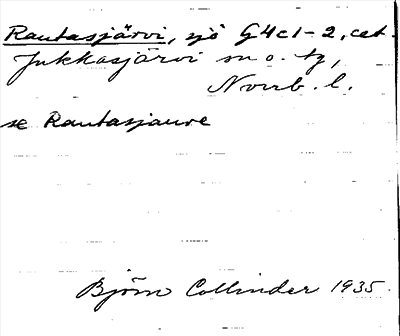 Rautasjärvi, sjö G4c1-2, cet.
Jukkasjärvi sn o. tg,
Norrb. l.
se Rautasjaure
Björn Collinder 1935.